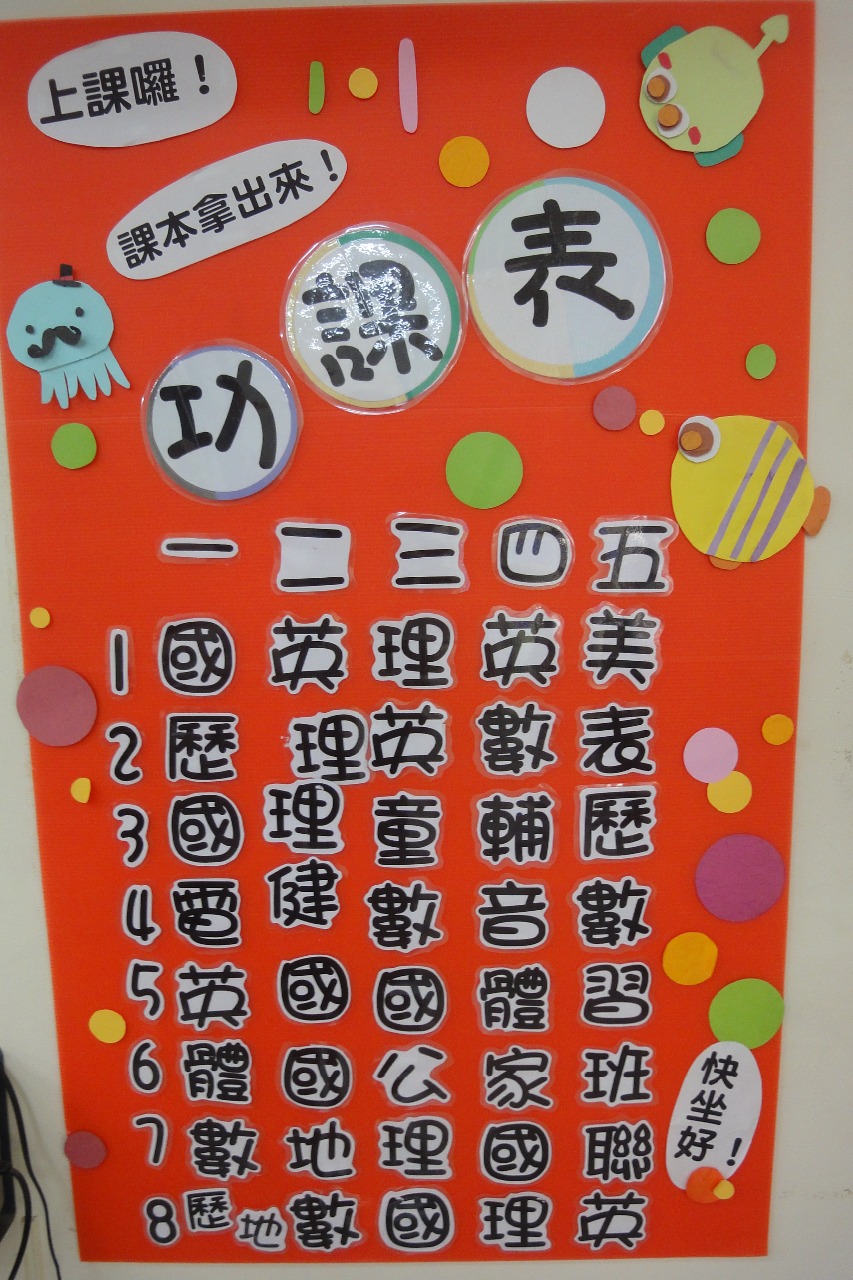 上課囉！
課本拿出來！
功課表
一 二 三 四 五
1 國 英 理 英 美
2 歷 理 英 數 表
3 國 理 童 輔 歷
4 電 健 數 音 數
5 英 國 國 體 習
6 體 國 公 家 班
7 數 地 理 國 聯
8 歷 地 數 國 理 英
快坐好！